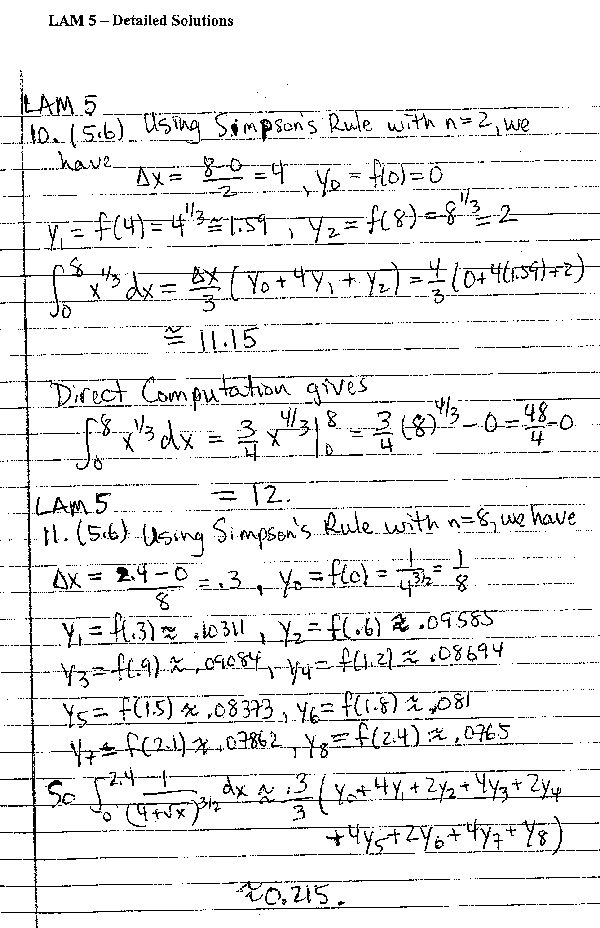 LAM 5 – Detailed Solutions
LAM 5
10. (5.6) Using Simpson's Rule with n=2, we
have Δx = (8-0)/2 = 4, y₀ = f(0) = 0
y₁ = f(4) = 4^(1/3) ≅ 1.59, y₂ = f(8) = 8^(1/3) = 2
∫₀⁸ x^(1/3) dx = Δx/3 (y₀ + 4y₁ + y₂) = 4/3 (0+4(1.59)+2)
≅ 11.15
Direct Computation gives
∫₀⁸ x^(1/3) dx = 3/4 x^(4/3) |₀⁸ = 3/4 (8)^(4/3) - 0 = 48/4 - 0
= 12.
LAM 5
11. (5.6) Using Simpson's Rule with n=8, we have
Δx = (2.4-0)/8 = .3, y₀ = f(0) = 1/4^(3/2) = 1/8
y₁ = f(.3) ≈ .10311, y₂ = f(.6) ≈ .09585
y₃ = f(.9) ≈ .09084, y₄ = f(1.2) ≈ .08694
y₅ = f(1.5) ≈ .08373, y₆ = f(1.8) ≈ .081
y₇ = f(2.1) ≈ .07862, y₈ = f(2.4) ≈ .0765
So ∫₀^2.4 1/(4+√x)^(3/2) dx ≈ .3/3 (y₀+4y₁+2y₂+4y₃+2y₄
+4y₅+2y₆+4y₇+y₈)
≈0.215.